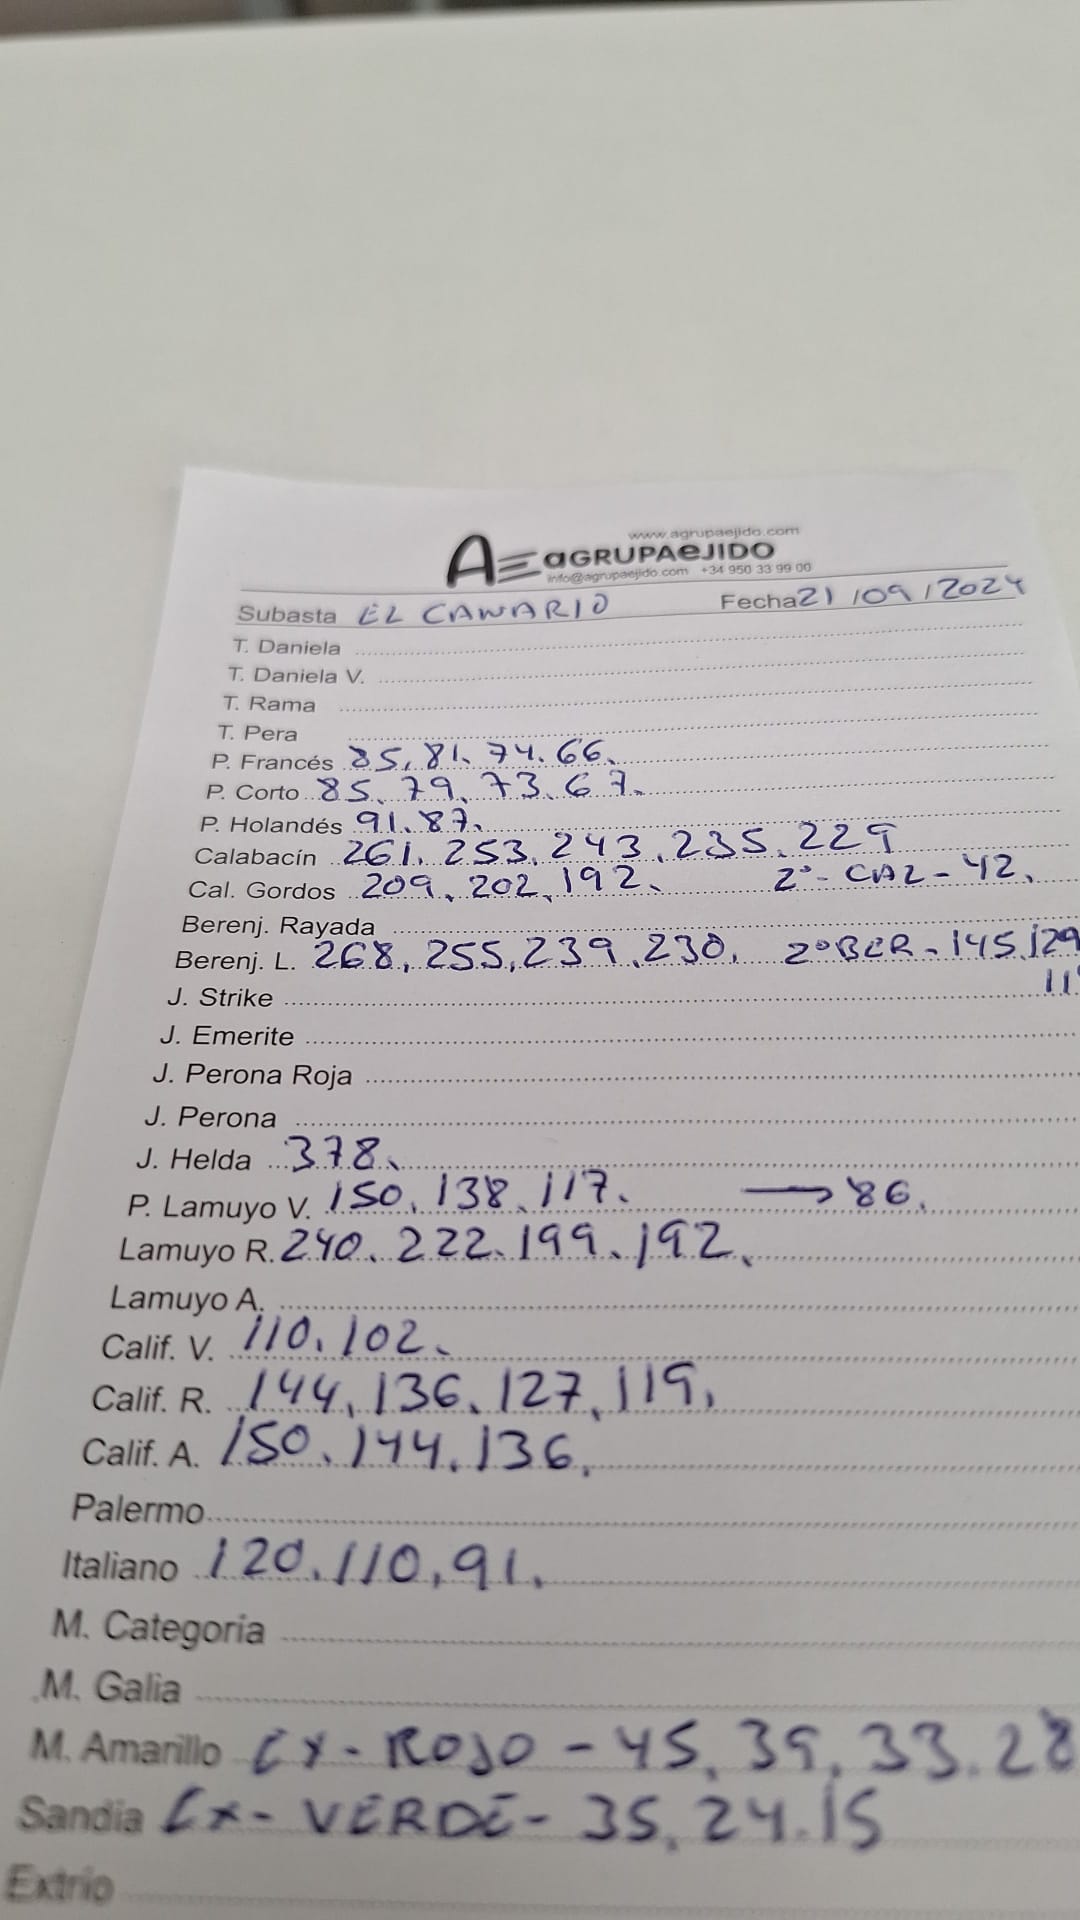 www.agrupaejido.com
AE aGRUPAeJIDO
info@agrupaejido.com +34 950 33 99 00
Subasta EL CANARIO Fecha 21/09/2024
T. Daniela
T. Daniela V.
T. Rama
T. Pera
P. Francés 85, 81, 74, 66,
P. Corto 85, 79, 73, 67,
P. Holandés 91, 87,
Calabacín 261, 253, 243, 235, 229
Cal. Gordos 209, 202, 192, 2º- CAL - 42,
Berenj. Rayada
Berenj. L. 268, 255, 239, 230, 2º BER - 145, 129
J. Strike
J. Emerite
J. Perona Roja
J. Perona
J. Helda 378,
P. Lamuyo V. 150, 138, 117, → 86,
Lamuyo R. 240, 222, 199, 192,
Lamuyo A.
Calif. V. 110, 102,
Calif. R. 144, 136, 127, 119,
Calif. A. 150, 144, 136,
Palermo
Italiano 120, 110, 91,
M. Categoria
M. Galia
M. Amarillo EX - ROJO - 45, 39, 33, 28
Sandia EX - VERDE - 35, 24, 15
Extrio